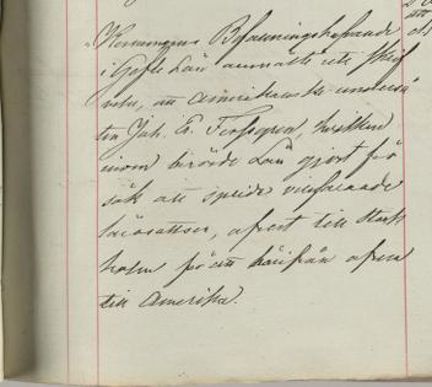 Konungens Befallningshafvande
i Gefle Län anmält uti skrif
velse, att Amerikanske underså
ten Joh. E. Forsgren, hvilken
inom berörde Län gjort för
sök att sprida villfarande
lärosatser, afrest till Stock
holm för att härifrån afresa
till Amerika.